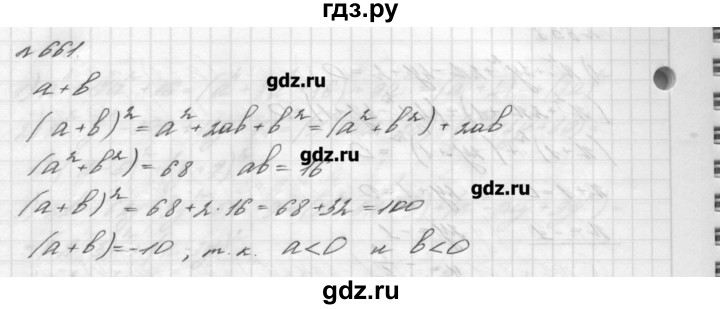 гдз.ру
№661.
gdz.ru
a+b
(a+b)² = a²+2ab+b² = (a²+b²)+2ab
gdz.ru
(a²+b²) = 68 ab = 16
gdz.ru
(a+b)² = 68+2·16 = 68+32 = 100
(a+b) = -10, т.к. a<0 и b<0
gdz.ru